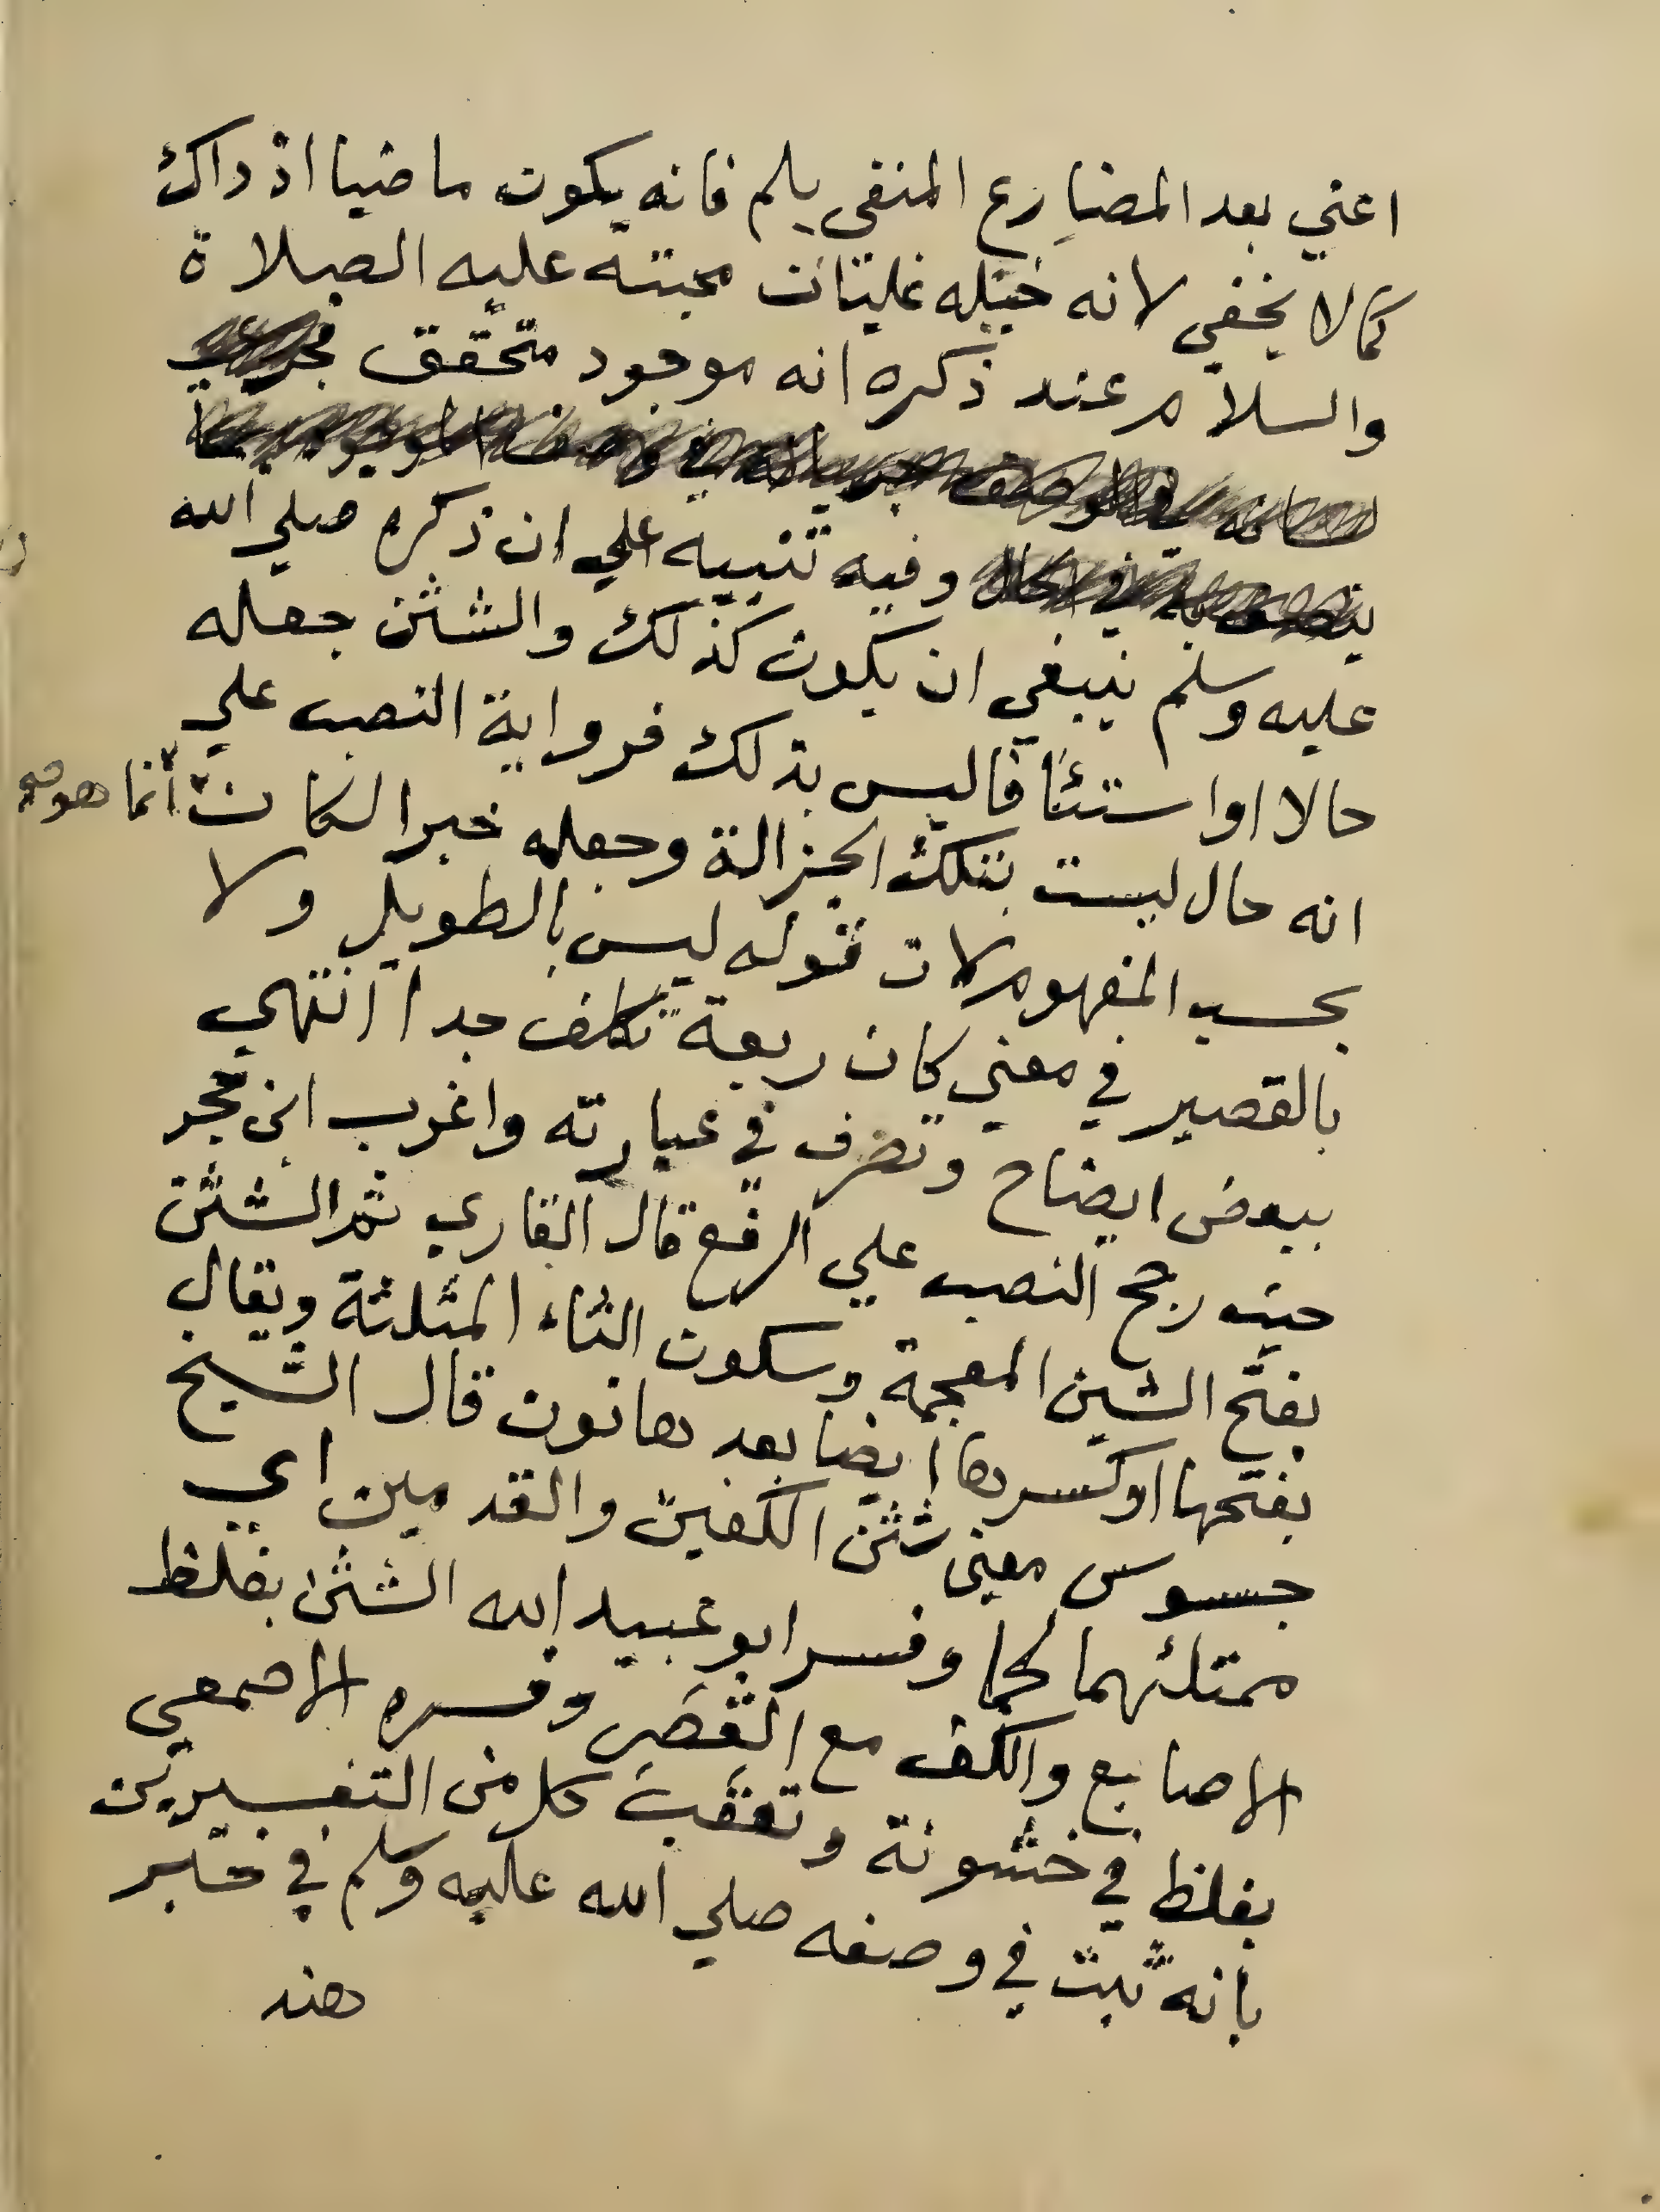 اعني بعد المضارع المنفى بلم فانه يكون ماضيا اذ ذاك
كما لا يخفي لانه خيله غليات محبته عليه الصلاة
والسلام عند ذكره انه موجود متحقق
وفيه تنبيه علي ان ذكره صلي الله
عليه وسلم ينبغي ان يكون كذلك والششن جعله
حالا او استئنا فاليس بذلك فرواية النصب علي
انه حال ليست بتلك الجزالة وجعله خبرا لكان انما هو
بحسب المفهوم لان قوله ليس بالطويل ولا
بالقصير في معني كان ربعة تكلف جدا انتهي
ببعض ايضاح وتصرف في عبارته واغرب ابن حجر
حيث رجح النصب علي الرفع قال القاري ثم الشثن
بفتح الشين المعجمة وسكون الثاء المثلثة ويقال
بفتحها او كسرها ايضا بعدها نون قال الشيخ
جسوس معنى شثن الكفين والقدمين اي
ممتلئهما لحما وفسر ابو عبيد الله الشثن بغلظ
الاصابع والكف مع القصر وفسره الاصمعي
بغلظ في خشونة وتعقب كل من التفسيرين
بانه ثبت في وصفه صلي الله عليه وسلم في خبر
هند